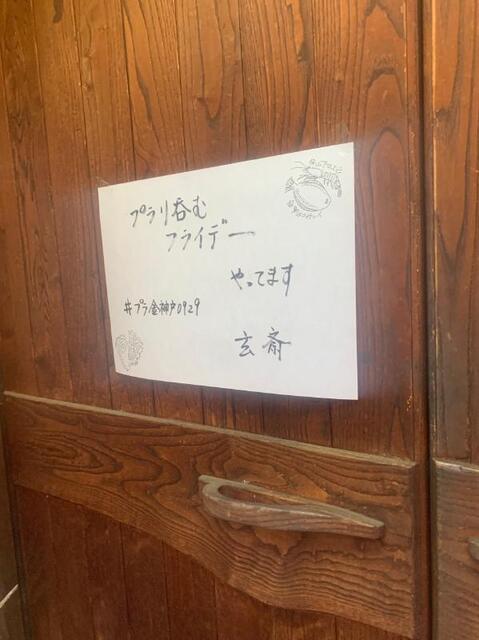 プラリ呑む
フライデー
やってます
#プラ金神戸0929
玄斎